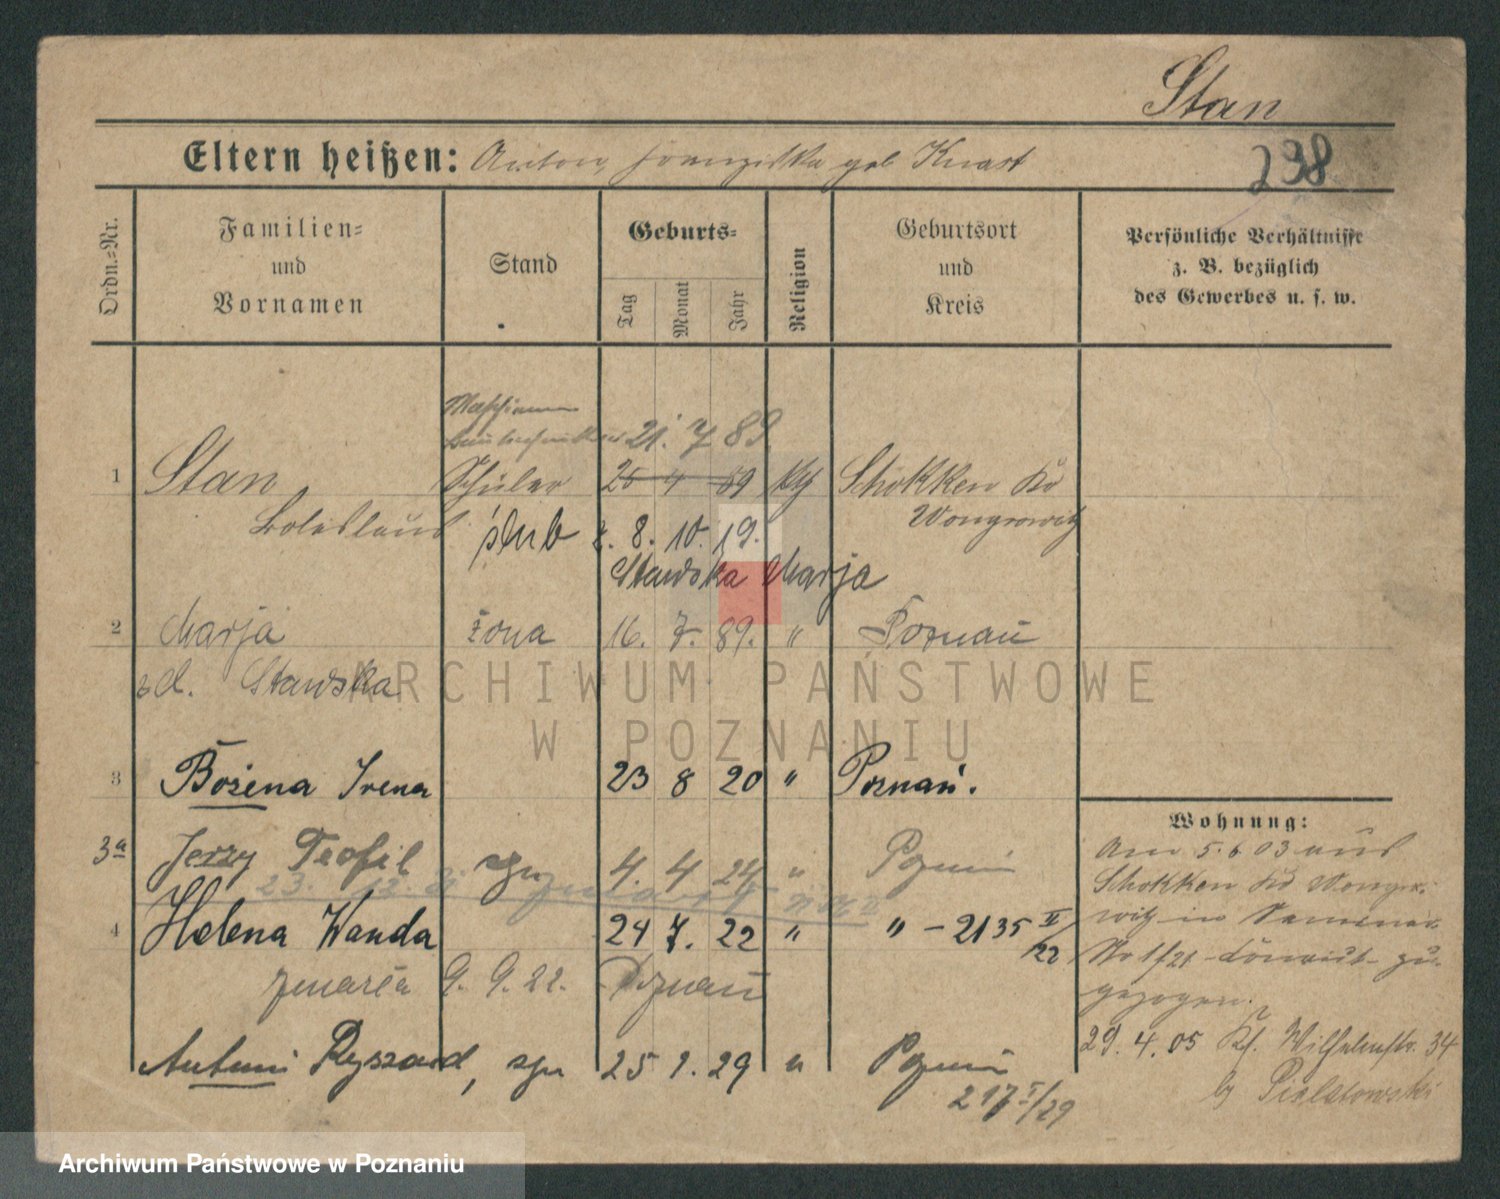 Stan
Eltern heißen: Anton, Franziska geb Knast
238
Ordn.-Nr.
Familien-
und
Vornamen
Stand
Geburts-
Tag
Monat
Jahr
Religion
Geburtsort
und
Kreis
Persönliche Verhältnisse
z. B. bezüglich
des Gewerbes u. s. w.
21. 7 89
1 Stan Schüler 25 4 89 kth Schokken Kr
Boleslaus ślub z. 8. 10. 19. Wongrowitz
Stawska Marja
2 Marja żona 16. 7. 89. " Poznań
zd. Stawska
ARCHIWUM PAŃSTWOWE
W POZNANIU
3 Bożena Irena 23 8 20 " Poznań.
3a Jerzy Teofil syn 4. 4 24 " Poznań
23. 12.
4 Helena Wanda 24 7. 22 " " - 2135 II/22
zmarła 9. 9. 22. Poznań
Antoni Ryszard, syn 25 1. 29 " Poznań
217 I/29
Wohnung:
Am 5. 6 03 aus
Schokken Kr Wongro-
witz in
zu-
gezogen.
29. 4. 05 Wilhelmstr. 34
Archiwum Państwowe w Poznaniu